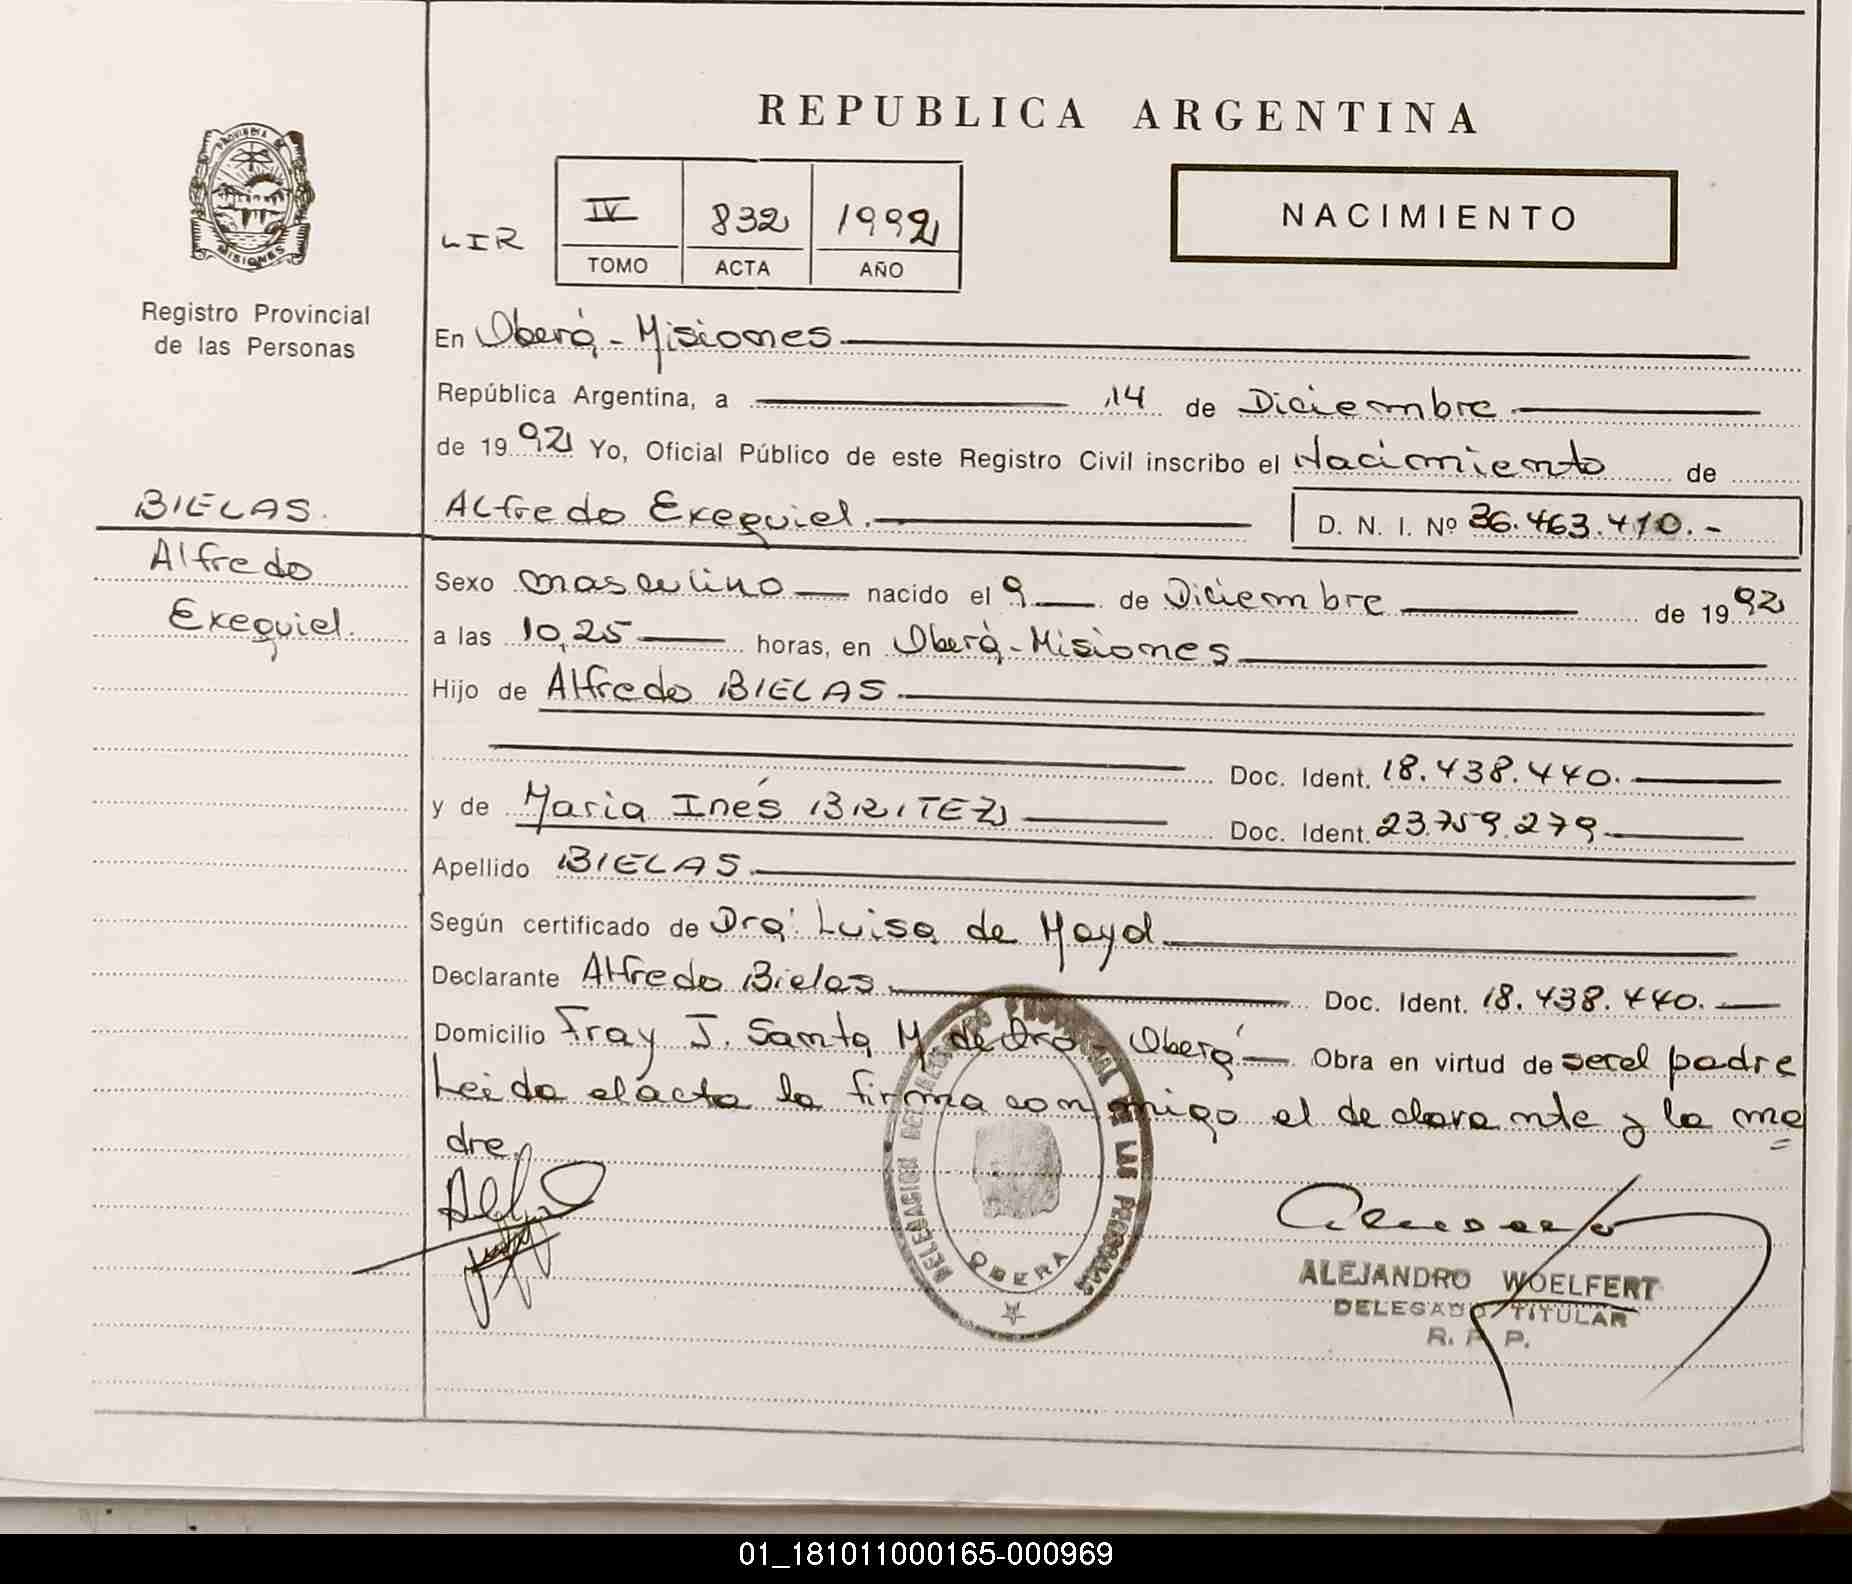 REPUBLICA ARGENTINA
PROVINCIA DE
MISIONES
Registro Provincial
de las Personas
LIR
IV 832 1992
TOMO ACTA AÑO
NACIMIENTO
En Oberá - Misiones
República Argentina, a 14 de Diciembre
de 1992 Yo, Oficial Público de este Registro Civil inscribo el Nacimiento de
BIELAS.
Alfredo Exequiel. D. N. I. Nº 36.463.410.-
Alfredo
Exequiel.
Sexo masculino nacido el 9 de Diciembre de 1992
a las 10,25 horas, en Oberá - Misiones
Hijo de Alfredo BIELAS
Doc. Ident. 18.438.440.
y de Maria Inés BRITEZ Doc. Ident. 23.759.279
Apellido BIELAS
Según certificado de Dra: Luisa de Mayol
Declarante Alfredo Bielas Doc. Ident. 18.438.440.
Domicilio Fray J. Santa M. de Oro - Oberá Obra en virtud de ser el padre
Leida el acta la firma conmigo el declarante y la ma
dre.
DELEGACION DEL REGISTRO PROVINCIAL DE LAS PERSONAS
OBERA
ALEJANDRO WOELFERT
DELEGADO TITULAR
R. P. P.
01_181011000165-000969